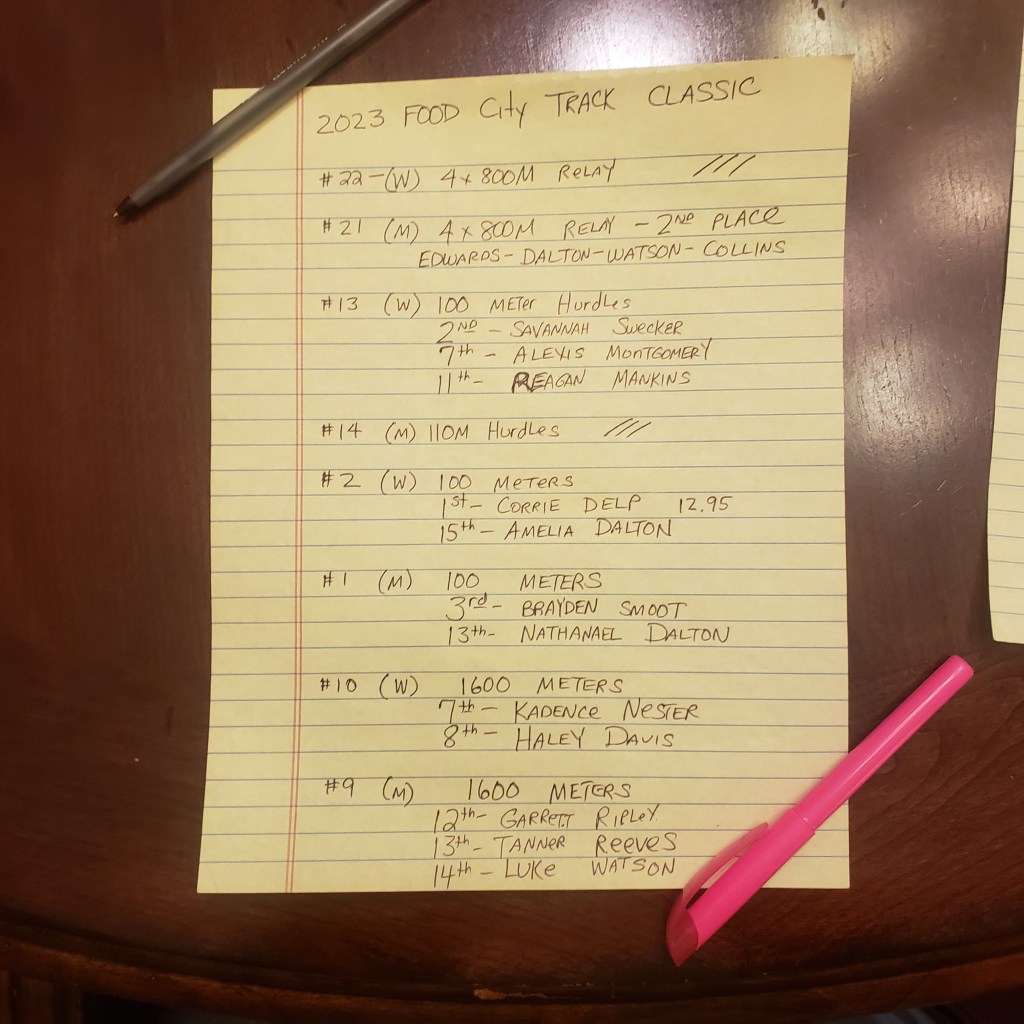 2023 FOOD City TRACK CLASSIC
#22-(W) 4x800M RELAY ////
#21 (M) 4x800M RELAY - 2ND PLACE
EDWARDS-DALTON-WATSON-COLLINS
#13 (W) 100 METER Hurdles
2ND - SAVANNAH Swecker
7th - ALEXIS MONTGOMERY
11th- REAGAN MANKINS
#14 (M) 110M Hurdles ////
#2 (W) 100 METERS
1st- CORRIE DELP 12.95
15th- AMELIA DALTON
#1 (M) 100 METERS
3rd- BRAYDEN SMOOT
13th- NATHANAEL DALTON
#10 (W) 1600 METERS
7th- KADENCE NESTER
8th- HALEY DAVIS
#9 (M) 1600 METERS
12th- GARRETT RIPLEY
13th- TANNER REEVES
14th- LUKE WATSON